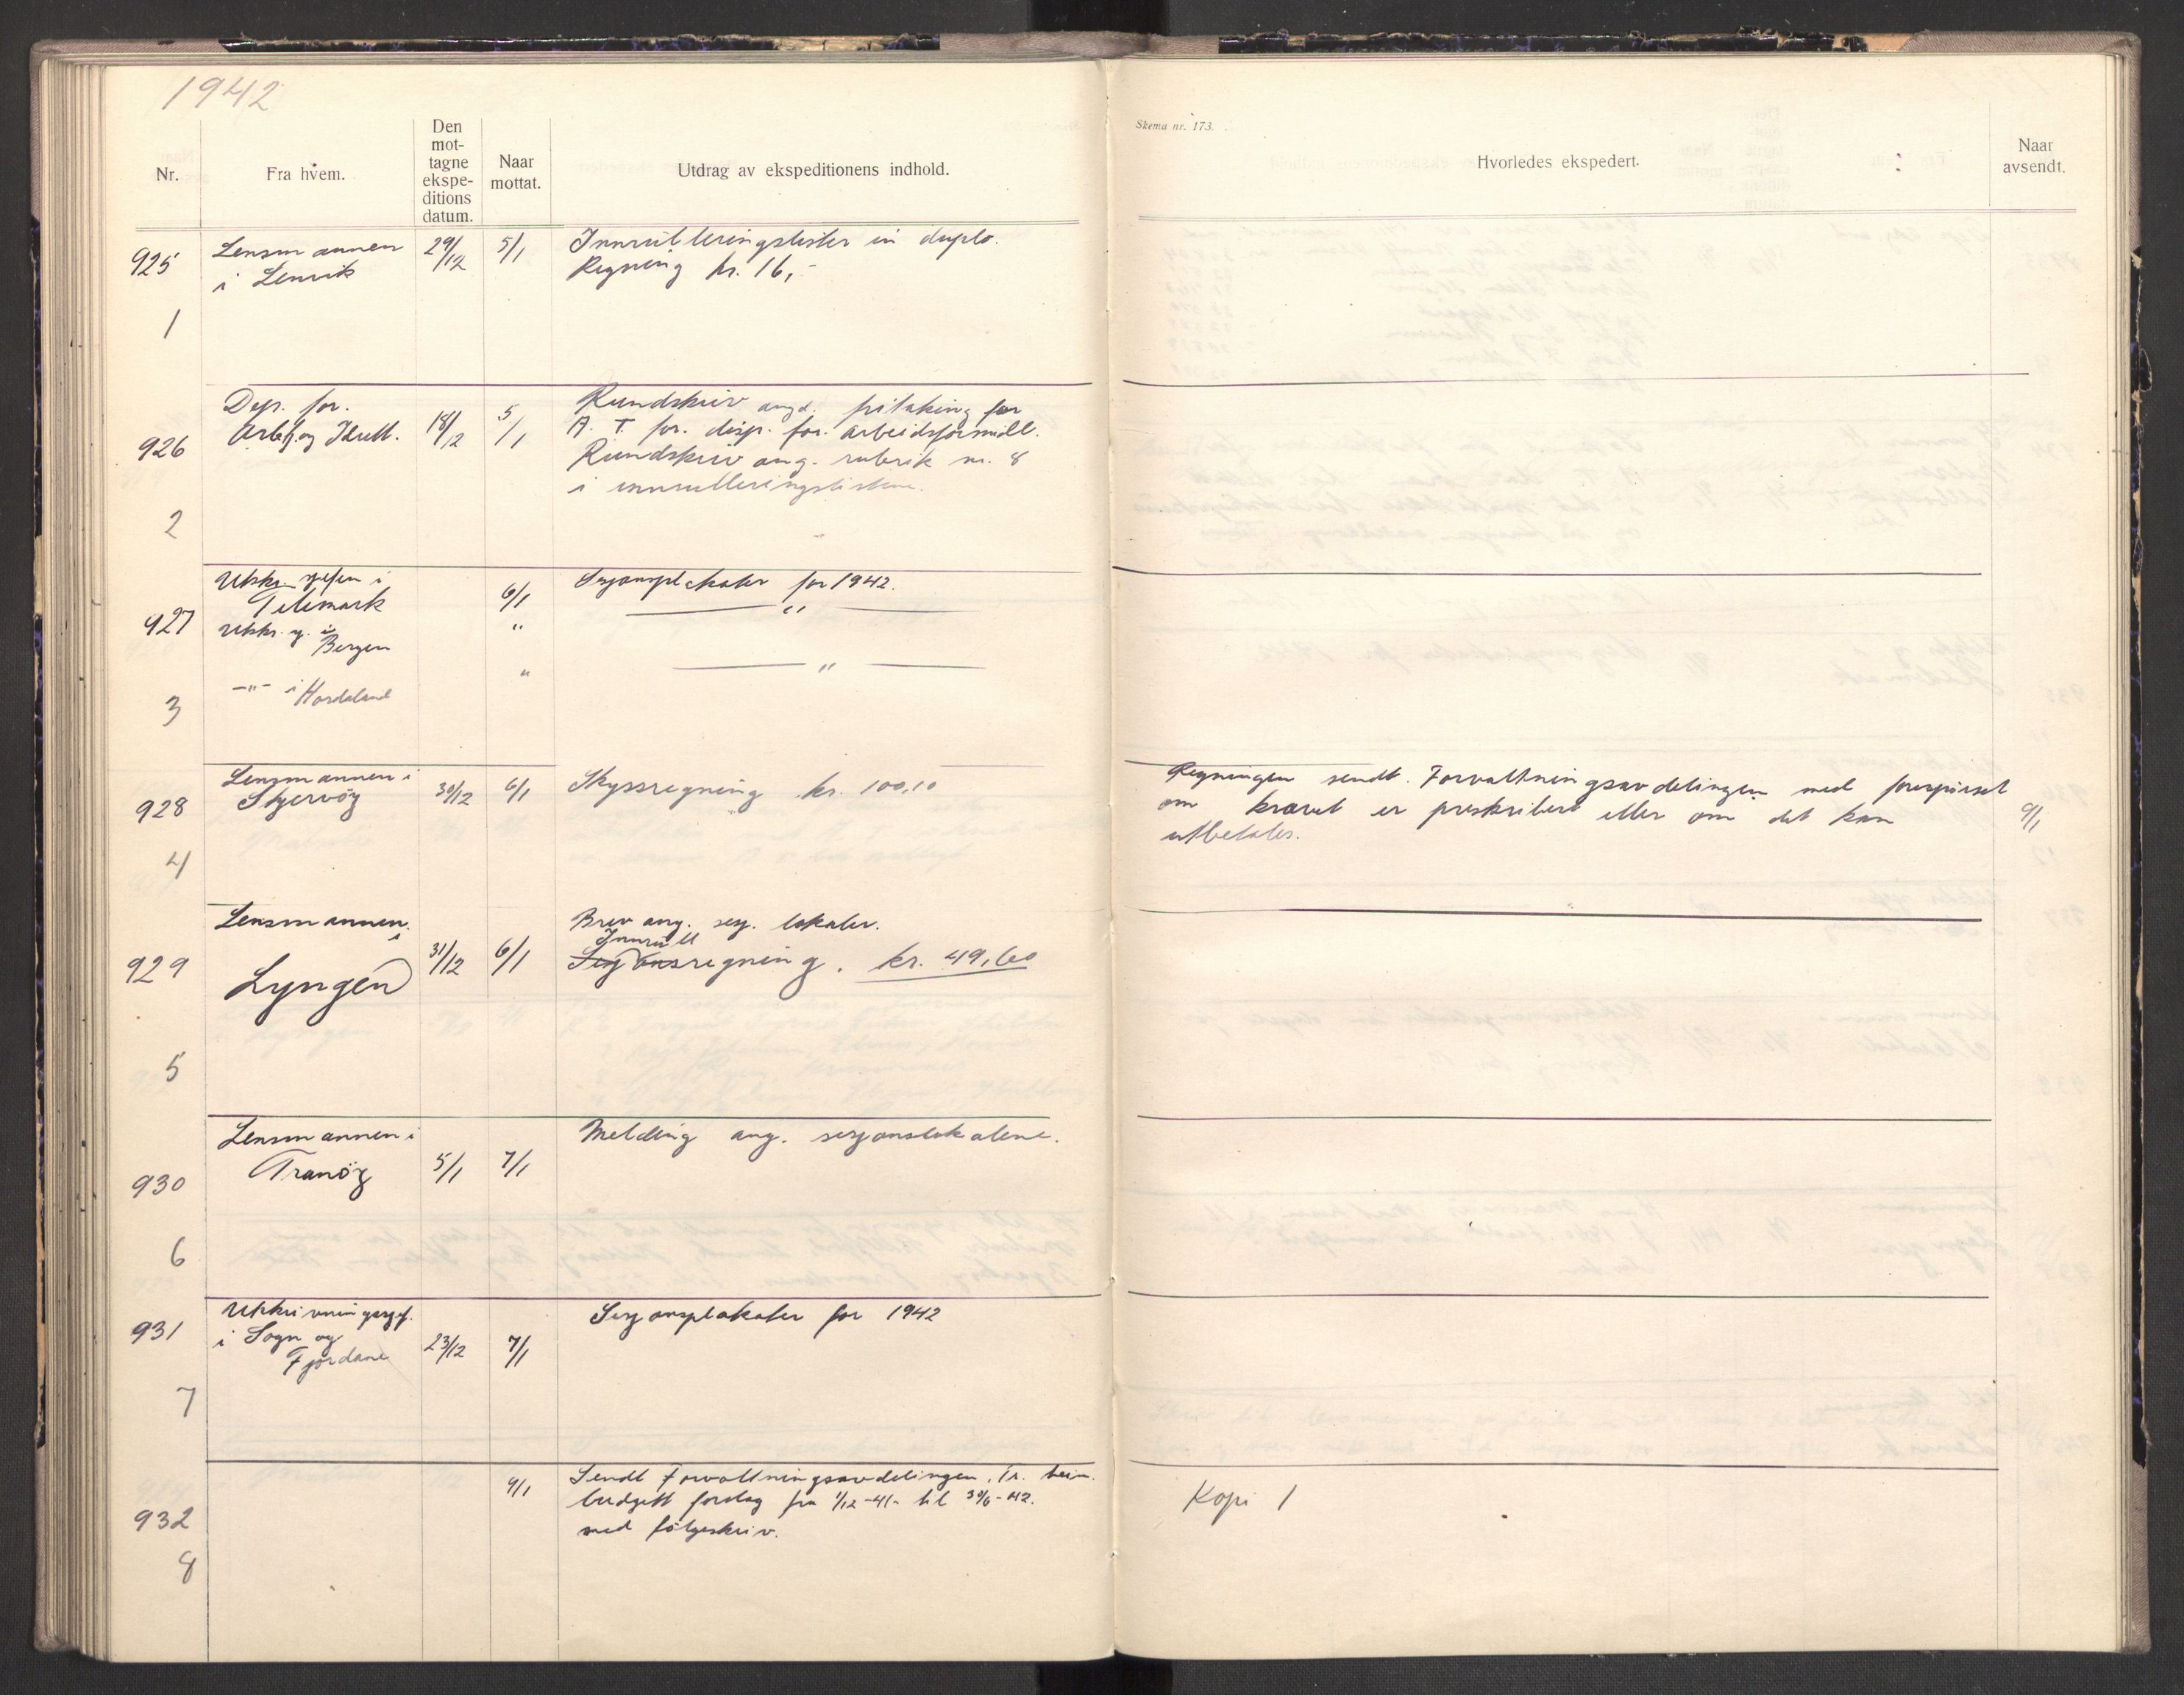 1942
Nr.
Fra hvem.
Den
mot-
tagne
ekspe-
ditions
datum.
Naar
mottat.
Utdrag av ekspeditionens indhold.
Skema nr. 173.
Hvorledes ekspedert.
Naar
avsendt.
925
1
Lensmannen
i Lenvik
29/12
5/1
Innrulleringslister in duplo.
Regning kr. 16,-
926
2
Dep. for.
Arbtj. og Idrett.
18/12
5/1
Rundskriv angd. fritaking for
A. T. for. disp. for. arbeidsformidl.
Rundskriv ang. rubrik nr. 8
i innrulleringslistene.
927
3
Utskr. sjefen i
Telemark
6/1
Sesjonsplakater for 1942.
Utskr. sj. i
Bergen
"
"
-"- i Hordaland
"
"
928
4
Lensmannen i
Skjervöy
30/12
6/1
Skyssregning kr. 100,10
Regningen sendt. Forvaltningsavdelingen med forespörsel
om kravet er preskribert eller om det kan
utbetales.
9/1
929
5
Lensmannen
i
Lyngen
31/12
6/1
Brev ang. sesj. lokaler.
Innrull
Sesjonsregning. kr. 49,60
930
6
Lensmannen i
Tranöy
5/1
7/1
Melding ang. sesjonslokalene.
931
7
Utskrivningssjef.
i Sogn og
Fjordane
23/12
7/1
Sesjonsplakater for 1942
932
8
9/1
Sendt Forvaltningsavdelingen, Tr. heim.
budgett forslag fra 1/12-41- til 30/6-42.
med fölgeskriv.
Kopi 1